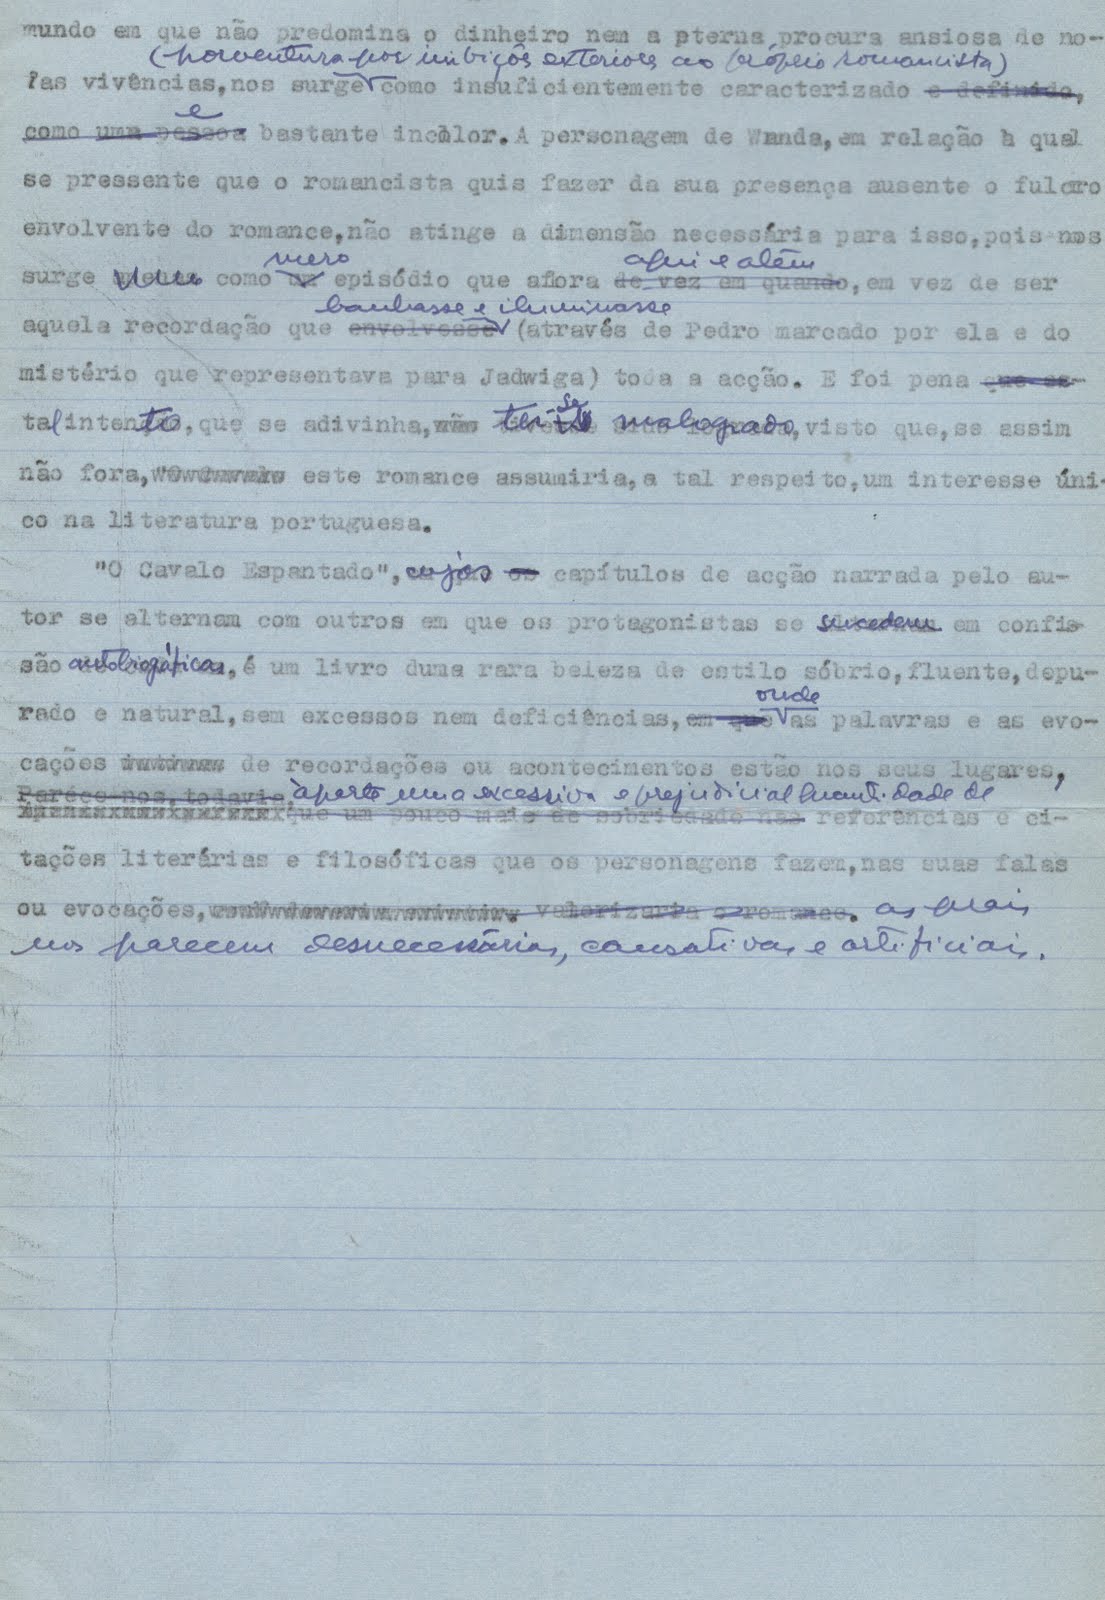 mundo em que não predomina o dinheiro nem a eterna procura ansiosa de no-
(porventura por inibições exteriores ao próprio romancista)
vas vivências, nos surge como insuficientemente caracterizado e definido,
e
como uma pessoa bastante incolor. A personagem de Wanda, em relação à qual
se pressente que o romancista quis fazer da sua presença ausente o fulcro
envolvente do romance, não atinge a dimensão necessária para isso, pois nos
mero aqui e além
surge como um episódio que aflora de vez em quando, em vez de ser
banhasse e iluminasse
aquela recordação que envolvesse (através de Pedro marcado por ela e do
mistério que representava para Jadwiga) toda a acção. E foi pena que es-
se
tal intento, que se adivinha, não ter- malogrado, visto que, se assim
não fora, este romance assumiria, a tal respeito, um interesse úni-
co na literatura portuguesa.
"O Cavalo Espantado", cujos os capítulos de acção narrada pelo au-
tor se alternam com outros em que os protagonistas se sucedem em confis-
são autobiográfica, é um livro duma rara beleza de estilo sóbrio, fluente, depu-
onde
rado e natural, sem excessos nem deficiências, em que as palavras e as evo-
cações de recordações ou acontecimentos estão nos seus lugares,
Parece-nos, todavia, àparte uma excessiva e prejudicial quantidade de
que um pouco mais de sobriedade nas referências e ci-
tações literárias e filosóficas que os personagens fazem, nas suas falas
ou evocações, valorizaria o romance. as quais
nos parecem desnecessárias, cansativas e artificiais.